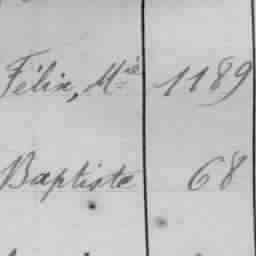 Félix, Mié 1189
Baptiste 68